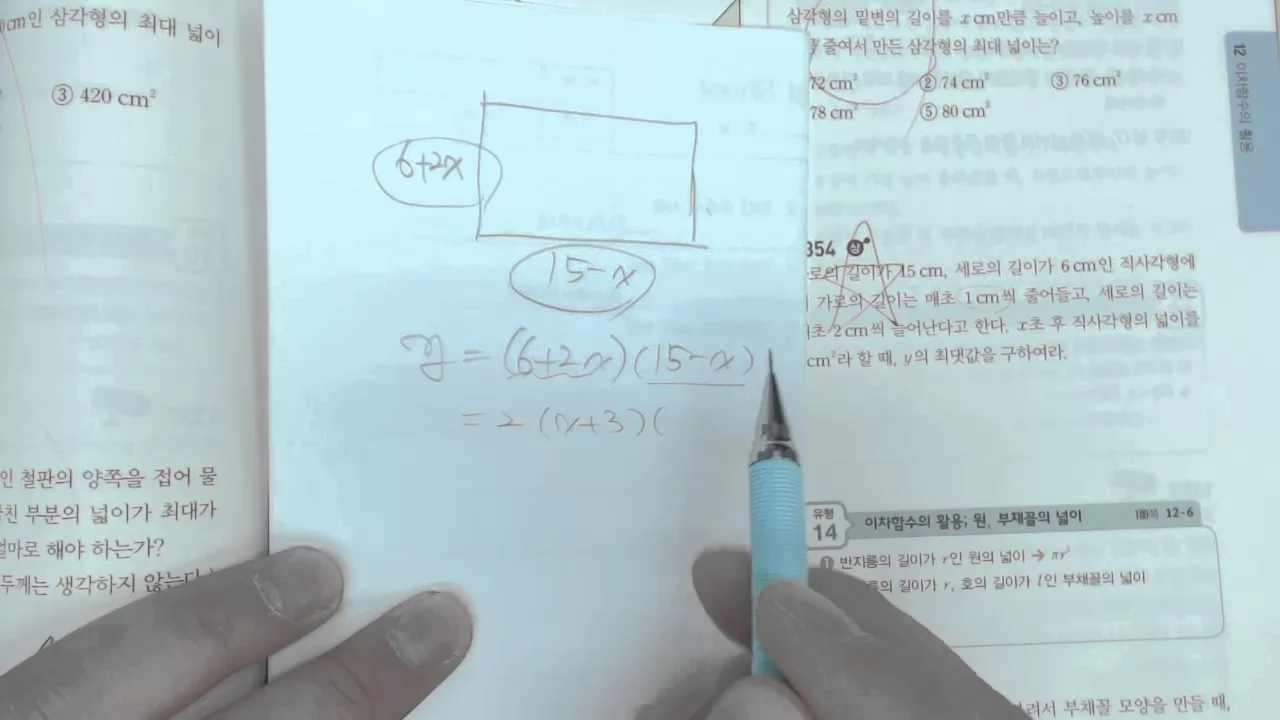 cm인 삼각형의 최대 넓이
③ 420 cm²
인 철판의 양쪽을 접어 물
친 부분의 넓이가 최대가
얼마로 해야 하는가?
두께는 생각하지 않는다.
6+2x
15-x
y = (6+2x)(15-x)
= 2(x+3)(
삼각형의 밑변의 길이를 x cm만큼 늘이고, 높이를 x cm
줄여서 만든 삼각형의 최대 넓이는?
72 cm² ② 74 cm² ③ 76 cm²
78 cm² ⑤ 80 cm²
12 이차함수의 활용
354 상
로의 길이가 15 cm, 세로의 길이가 6 cm인 직사각형에
가로의 길이는 매초 1 cm씩 줄어들고, 세로의 길이는
초 2 cm씩 늘어난다고 한다. x초 후 직사각형의 넓이를
cm²라 할 때, y의 최댓값을 구하여라.
유형 14 이차함수의 활용; 원, 부채꼴의 넓이 12-6
① 반지름의 길이가 r인 원의 넓이 → πr²
름의 길이가 r, 호의 길이가 l인 부채꼴의 넓이
려서 부채꼴 모양을 만들 때,